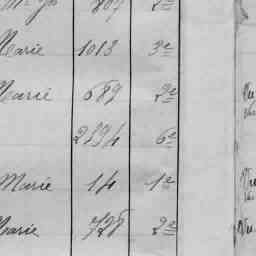 809 2e
Marie 1013 3e
Marie 689 2e
2394 6e
Marie 14 1e
Marie 728 2e